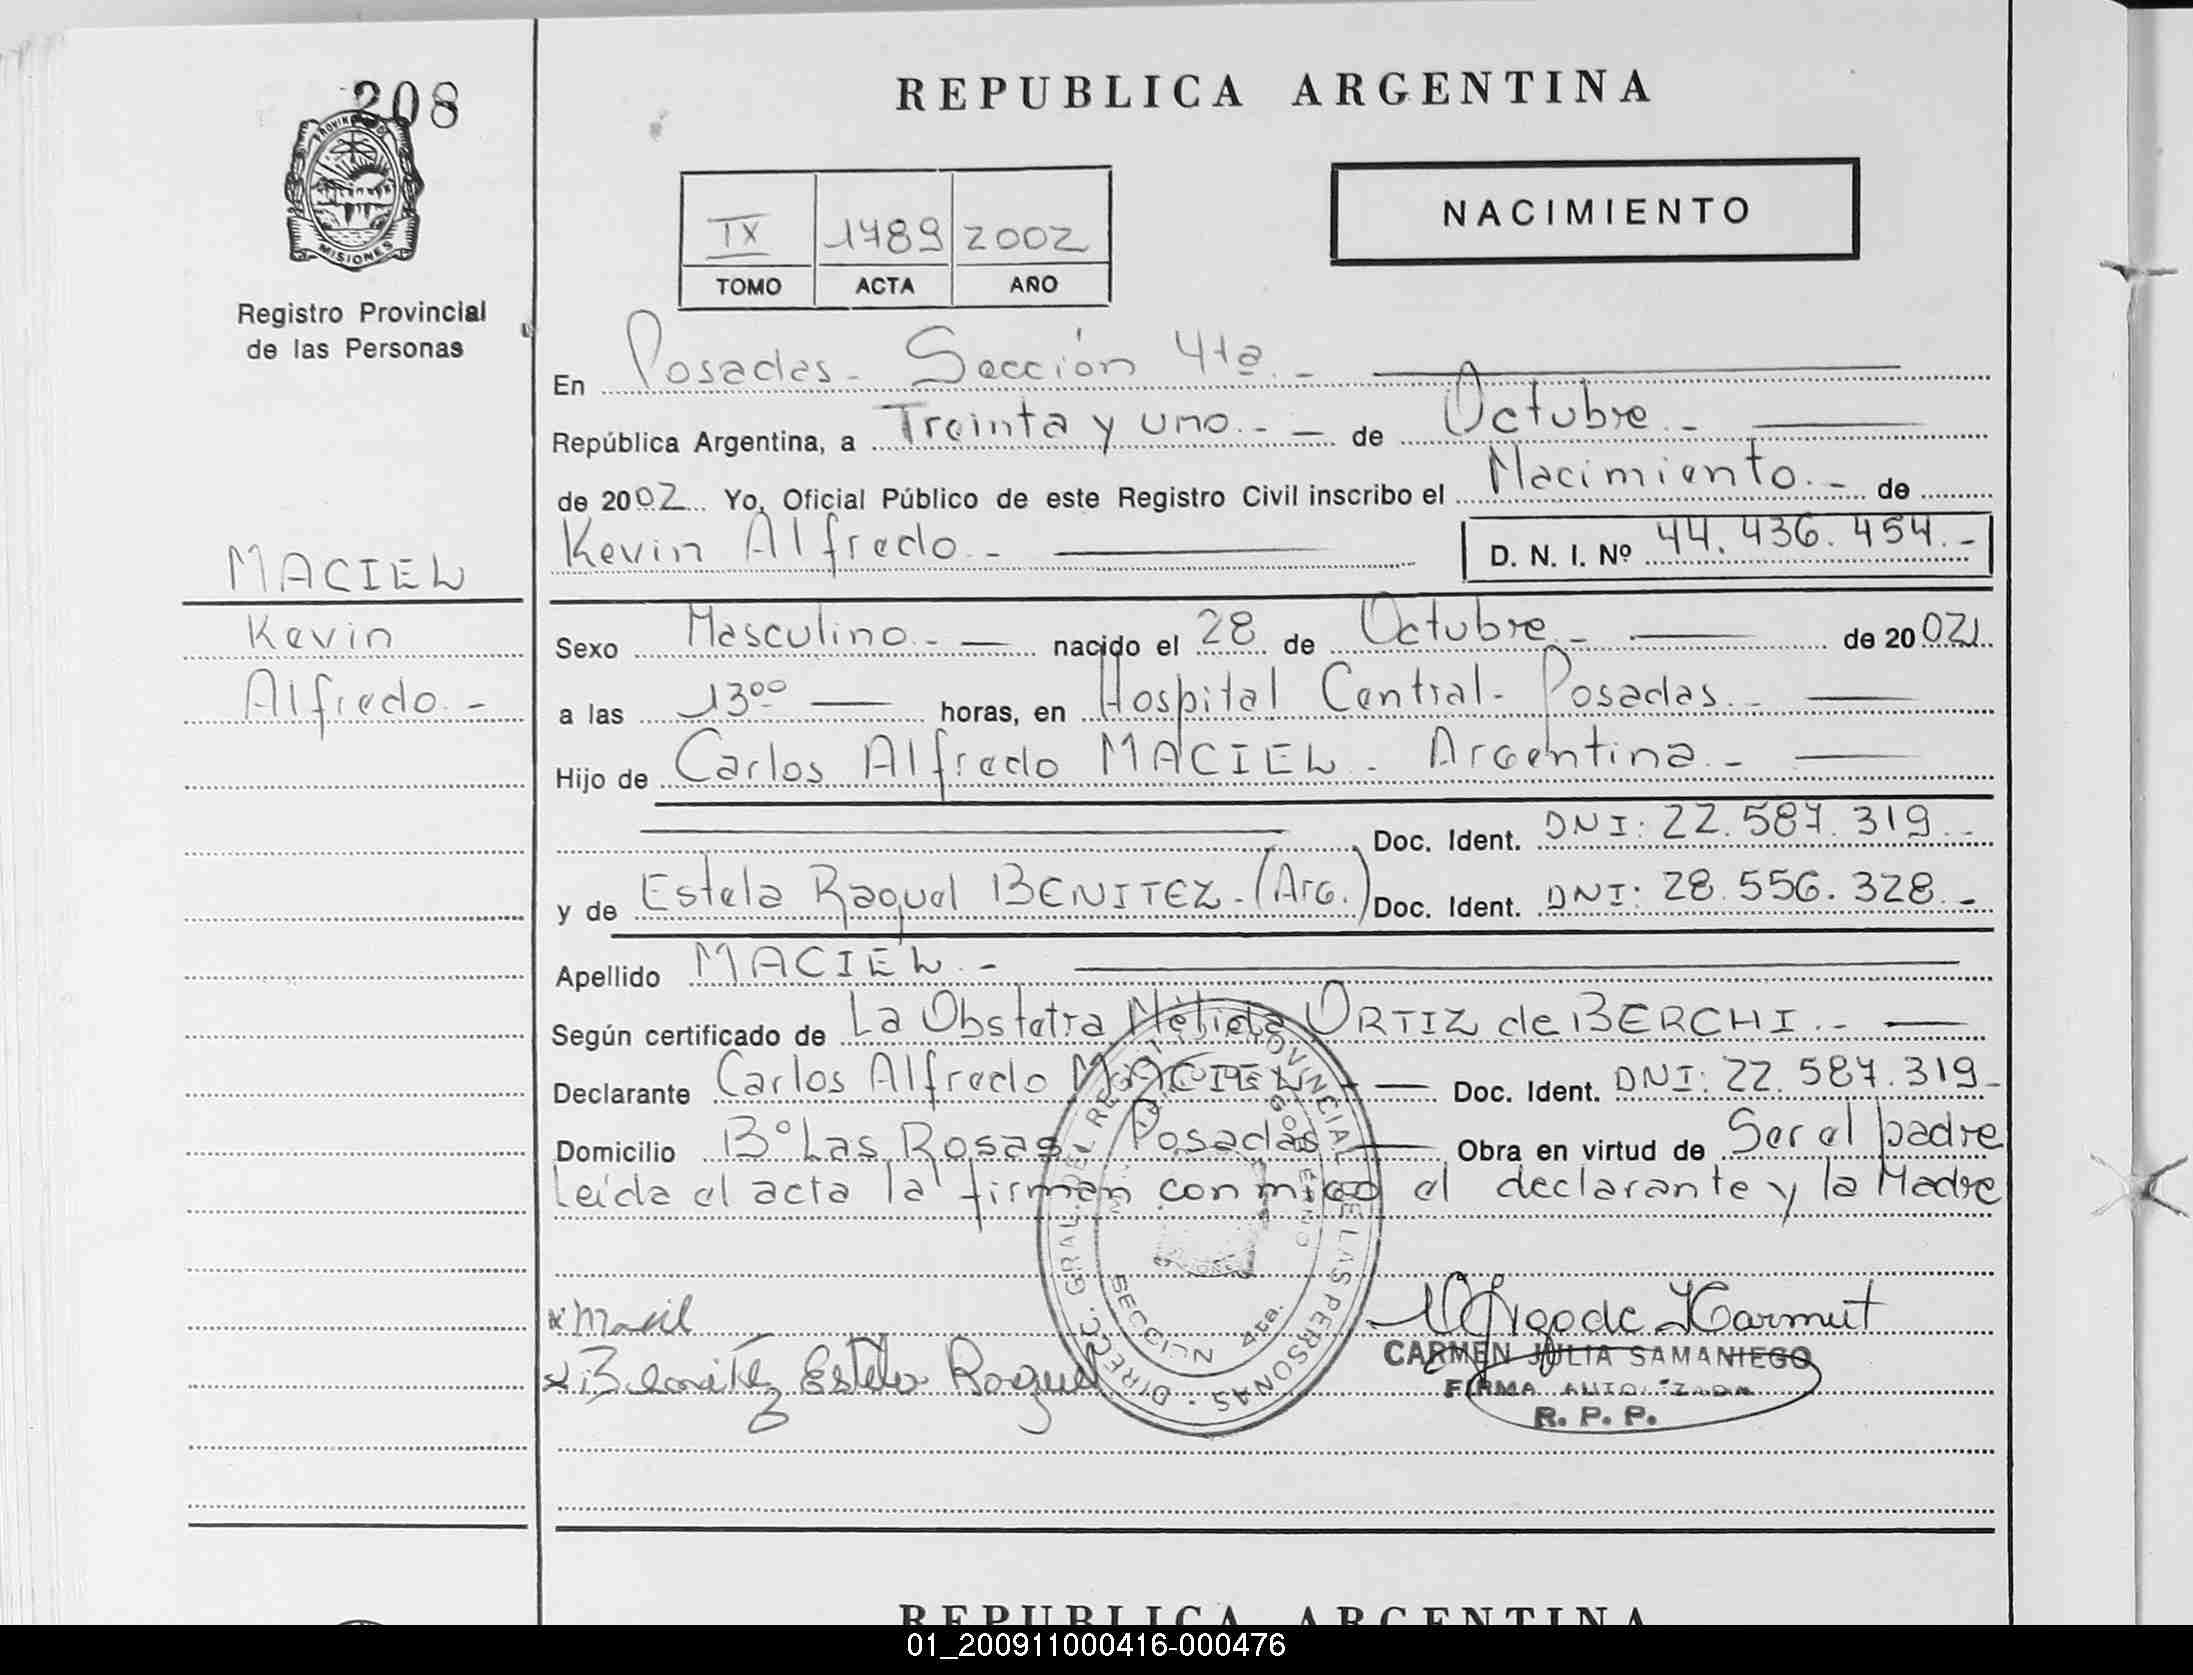 208
REPUBLICA ARGENTINA
PROVINCIA D
MISIONES
Registro Provincial
de las Personas
IX 1489 2002
TOMO ACTA AÑO
NACIMIENTO
En Posadas - Sección 4ta. -
República Argentina, a Treinta y uno. - de Octubre. -
de 2002 Yo, Oficial Público de este Registro Civil inscribo el Nacimiento. - de
Kevin Alfredo. - D. N. I. Nº 44.436.454. -
MACIEL
Kevin
Alfredo. -
Sexo Masculino. - nacido el 28 de Octubre. - de 2002.
a las 13⁰⁰ horas, en Hospital Central - Posadas. -
Hijo de Carlos Alfredo MACIEL - Argentina. -
Doc. Ident. DNI: 22.587.319. -
y de Estela Raquel BENITEZ - (Arg.) Doc. Ident. DNI: 28.556.328. -
Apellido MACIEL. -
Según certificado de La Obstetra ORTIZ de BERCHI. -
Declarante Carlos Alfredo MACIEL - Doc. Ident. DNI: 22.587.319 -
Domicilio Bº Las Rosas Posadas Obra en virtud de Ser el padre
Leída el acta la firman conmigo el declarante y la Madre
DIRECC. GRAL. DEL REGISTRO PROVINCIAL DE LAS PERSONAS
SECCION 4ta.
x Maciel
x Benitez Estela Raquel
CARMEN JULIA SAMANIEGO
FIRMA AUTORIZADA
R. P. P.
REPUBLICA ARGENTINA
01_200911000416-000476